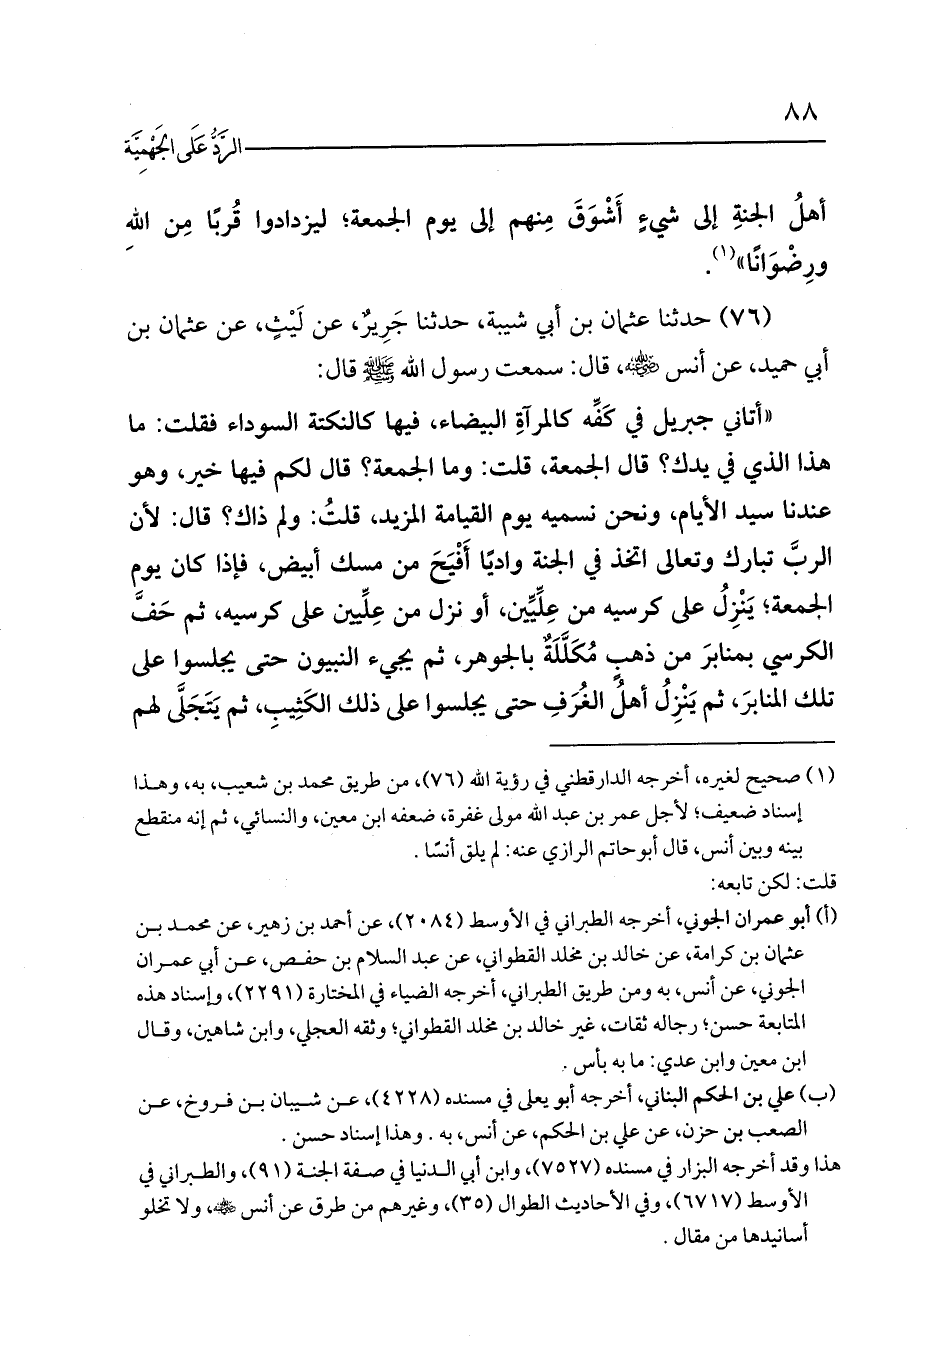 ٨٨
الرَّدُّ عَلَى الجَهْمِيَّة
أهلُ الجنةِ إلى شيءٍ أَشْوَقَ مِنهم إلى يوم الجمعة؛ ليزدادوا قُربًا مِن اللهِ
ورِضْوَانًا»(١).
(٧٦) حدثنا عثمان بن أبي شيبة، حدثنا جَرِيرٌ، عن لَيْثٍ، عن عثمان بن
أبي حميد، عن أنس رضي الله عنه، قال: سمعت رسول الله ﷺ قال:
«أتاني جبريل في كَفِّه كالمرآةِ البيضاء، فيها كالنكتة السوداء فقلت: ما
هذا الذي في يدك؟ قال الجمعة، قلت: وما الجمعة؟ قال لكم فيها خير، وهو
عندنا سيد الأيام، ونحن نسميه يوم القيامة المزيد، قلتُ: ولم ذاك؟ قال: لأن
الربَّ تبارك وتعالى اتخذ في الجنة واديًا أَفْيَحَ من مسك أبيض، فإذا كان يوم
الجمعة؛ يَنْزِلُ على كرسيه من عِلِّيِّين، أو نزل من عِلِّيين على كرسيه، ثم حَفَّ
الكرسي بمنابرَ من ذهبٍ مُكَلَّلَةٌ بالجوهر، ثم يجيء النبيون حتى يجلسوا على
تلك المنابرَ، ثم يَنْزِلُ أهلُ الغُرَفِ حتى يجلسوا على ذلك الكَثِيبِ، ثم يَتَجَلَّى لهم
(١) صحيح لغيره، أخرجه الدارقطني في رؤية الله (٧٦)، من طريق محمد بن شعيب، به، وهذا
إسناد ضعيف؛ لأجل عمر بن عبد الله مولى غفرة، ضعفه ابن معين، والنسائي، ثم إنه منقطع
بينه وبين أنس، قال أبو حاتم الرازي عنه: لم يلق أنسًا .
قلت: لكن تابعه:
(أ) أبو عمران الجوني، أخرجه الطبراني في الأوسط (٢٠٨٤)، عن أحمد بن زهير، عن محمد بن
عثمان بن كرامة، عن خالد بن مخلد القطواني، عن عبد السلام بن حفص، عن أبي عمران
الجوني، عن أنس، به ومن طريق الطبراني، أخرجه الضياء في المختارة (٢٢٩١)، وإسناد هذه
المتابعة حسن؛ رجاله ثقات، غير خالد بن مخلد القطواني؛ وثقه العجلي، وابن شاهين، وقال
ابن معين وابن عدي: ما به بأس .
(ب) علي بن الحكم البناني، أخرجه أبو يعلى في مسنده (٤٢٢٨)، عن شيبان بن فروخ، عن
الصعب بن حزن، عن علي بن الحكم، عن أنس، به . وهذا إسناد حسن .
هذا وقد أخرجه البزار في مسنده (٧٥٢٧)، وابن أبي الدنيا في صفة الجنة (٩١)، والطبراني في
الأوسط (٦٧١٧)، وفي الأحاديث الطوال (٣٥)، وغيرهم من طرق عن أنس رضي الله عنه، ولا تخلو
أسانيدها من مقال .